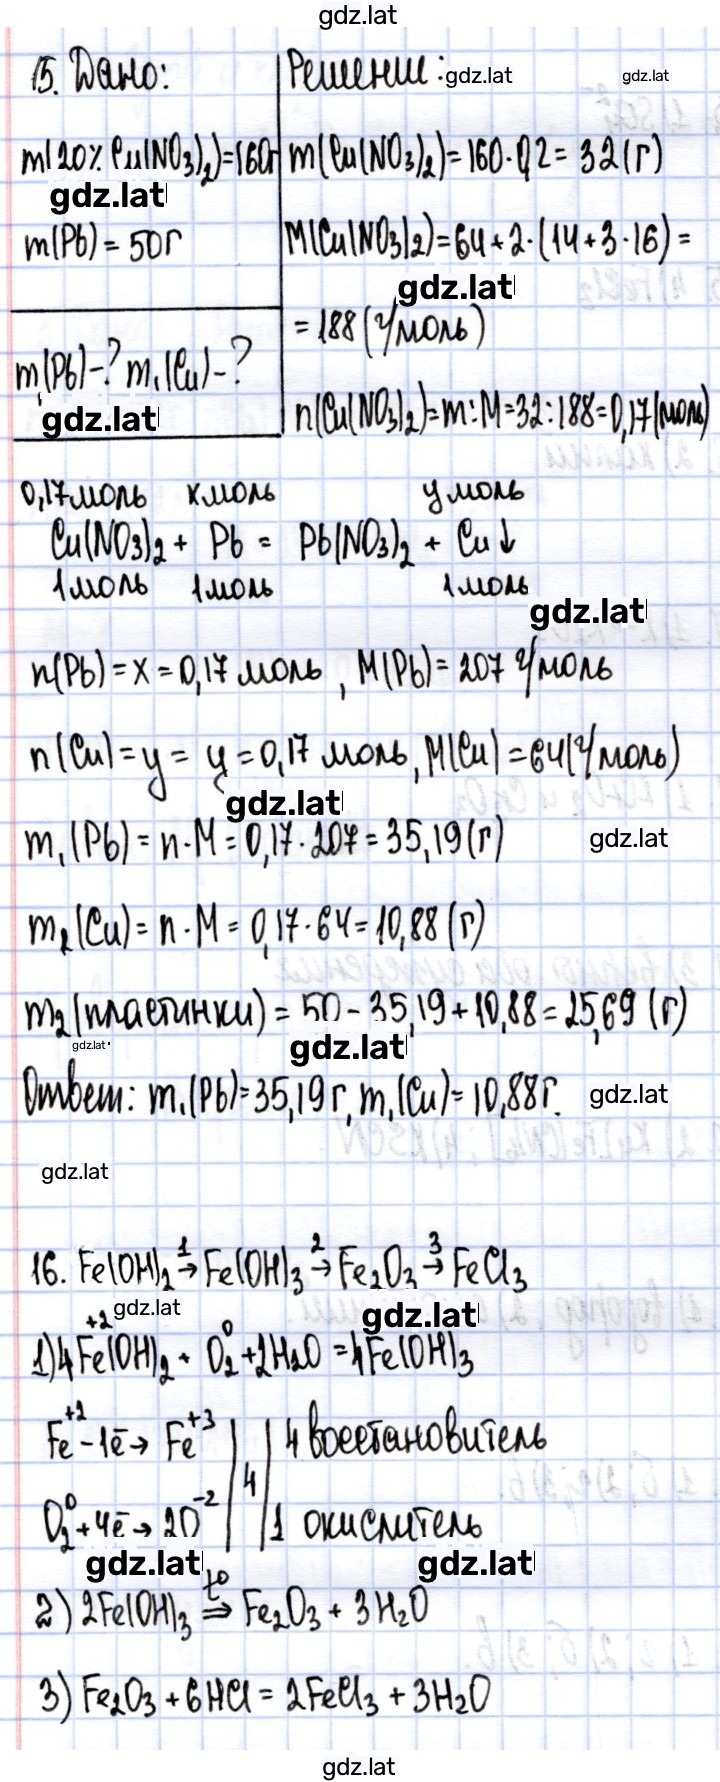 gdz.lat
15. Дано:
Решение: gdz.lat gdz.lat
m(20% Cu(NO₃)₂)=160г
gdz.lat
m(Pb) = 50г
m₁(Pb)-? m₁(Cu)-?
gdz.lat
m(Cu(NO₃)₂)=160·0,2= 32(г)
M(Cu(NO₃)₂)=64+2·(14+3·16)=
gdz.lat
=188(г/моль)
n(Cu(NO₃)₂)=m:M=32:188=0,17(моль)
0,17моль хмоль умоль
Cu(NO₃)₂ + Pb = Pb(NO₃)₂ + Cu↓
1моль 1моль 1моль
gdz.lat
n(Pb)=x=0,17 моль, M(Pb)= 207 г/моль
n(Cu)=y= y=0,17 моль, M(Cu)=64(г/моль)
gdz.lat
m₁(Pb)= n·M= 0,17·207=35,19(г) gdz.lat
m₂(Cu)= n·M= 0,17·64=10,88(г)
m₂(пластинки)= 50-35,19+10,88=25,69 (г)
gdz.lat gdz.lat
Ответ: m₁(Pb)=35,19г, m₁(Cu)= 10,88г. gdz.lat
gdz.lat
16. Fe(OH)₂ →¹ Fe(OH)₃ →² Fe₂O₃ →³ FeCl₃
gdz.lat gdz.lat
1)4Fe⁺²(OH)₂ + O₂⁰+2H₂O =4Fe(OH)₃
Fe⁺²-1ē→ Fe⁺³ | | 4 восстановитель
4
O₂⁰+4ē→ 2O⁻² | | 1 окислитель
gdz.lat gdz.lat
2) 2Fe(OH)₃ ⇒ᵗ⁰ Fe₂O₃ + 3H₂O
3) Fe₂O₃+6HCl= 2FeCl₃+3H₂O
gdz.lat